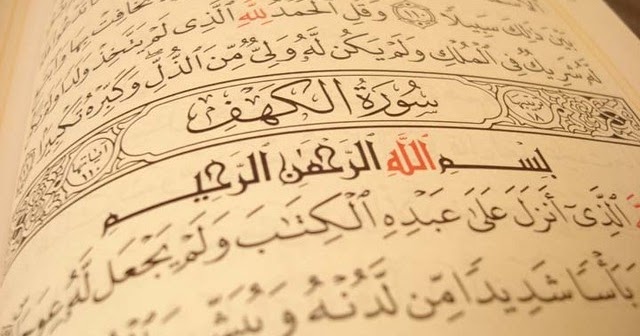 بَيْنَ ذَٰلِكَ سَبِيلًا ١١٠ وَقُلِ ٱلْحَمْدُ لِلَّهِ ٱلَّذِى لَمْ يَتَّخِذْ وَلَدًا وَلَمْ
شَرِيكٌ فِى ٱلْمُلْكِ وَلَمْ يَكُن لَّهُۥ وَلِىٌّ مِّنَ ٱلذُّلِّ وَكَبِّرْهُ تَكْبِيرًا
سُورَةُ ٱلْكَهْفِ
بِسْمِ ٱللَّهِ ٱلرَّحْمَٰنِ ٱلرَّحِيمِ
ٱلَّذِىٓ أَنزَلَ عَلَىٰ عَبْدِهِ ٱلْكِتَٰبَ وَلَمْ يَجْعَل لَّهُۥ عِوَجًا
بَأْسًا شَدِيدًا مِّن لَّدُنْهُ وَيُبَشِّرَ